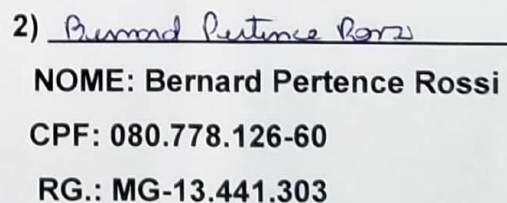 2) Bernard Pertence Rossi
NOME: Bernard Pertence Rossi
CPF: 080.778.126-60
RG.: MG-13.441.303